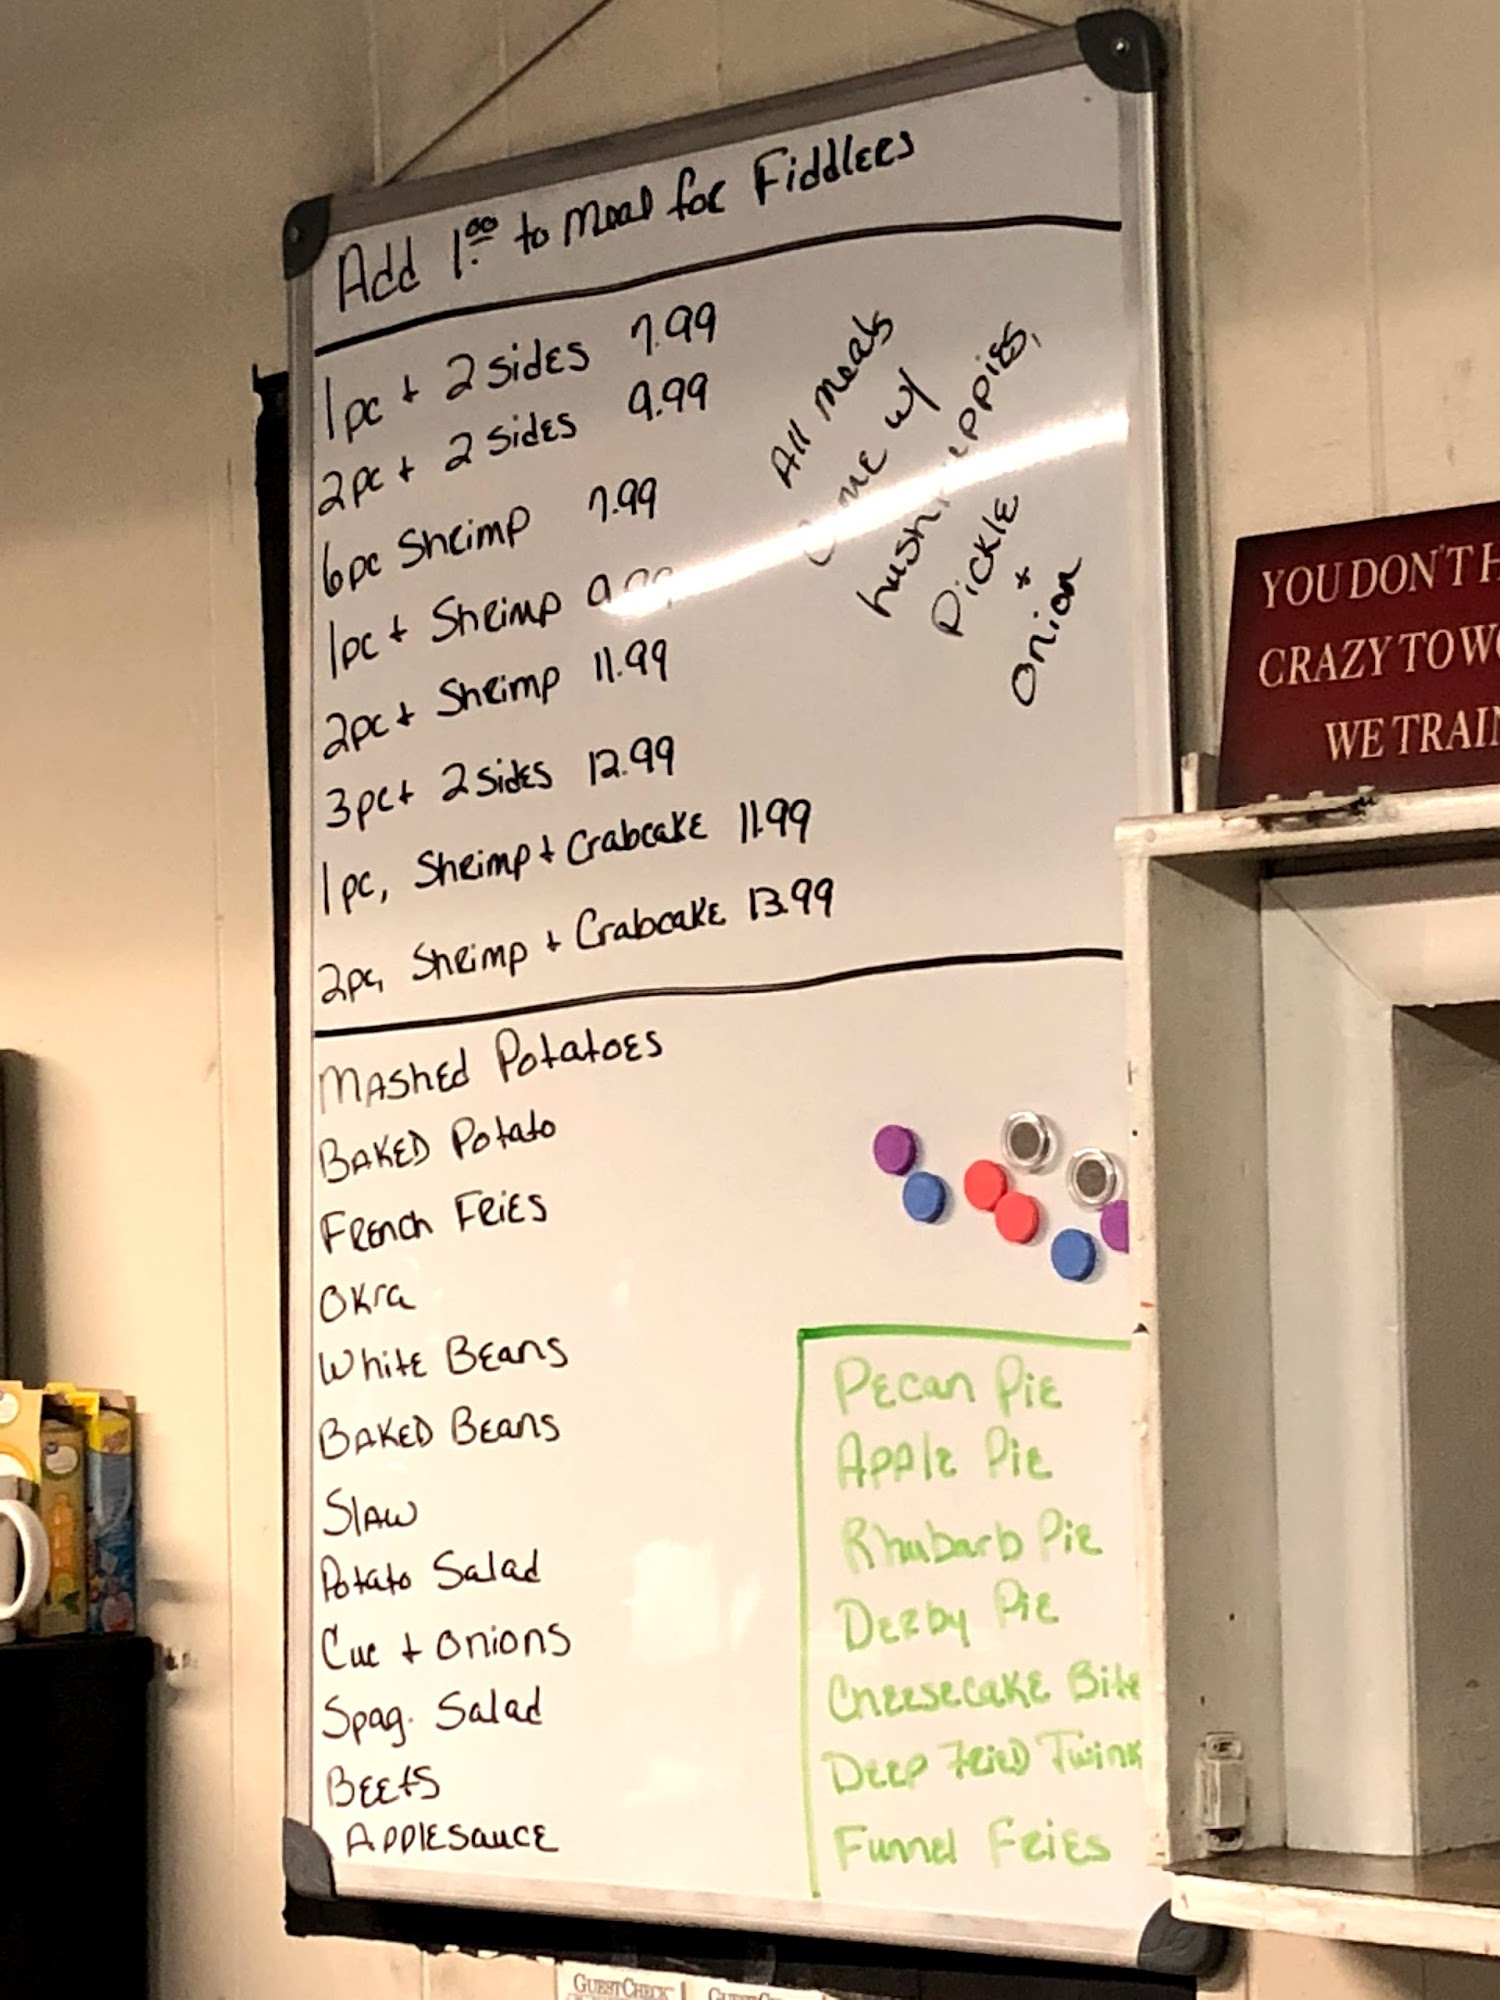 Add 1.00 to meal for Fiddlers
1pc + 2 sides 7.99
2pc + 2 sides 9.99
6pc Shrimp 7.99
1pc + Shrimp 9.99
2pc + Shrimp 11.99
3pc + 2 sides 12.99
1pc, Shrimp + Crabcake 11.99
2pc, Shrimp + Crabcake 13.99
All meals
Come w/
hushpuppies,
Pickle
+
Onion
Mashed Potatoes
Baked Potato
French Fries
Okra
White Beans
Baked Beans
Slaw
Potato Salad
Cuc + Onions
Spag. Salad
Beets
Applesauce
Pecan Pie
Apple Pie
Rhubarb Pie
Derby Pie
Cheesecake Bite
Deep Fried Twink
Funnel Fries
YOU DON'T H
CRAZY TO WO
WE TRAIN
GUESTCHECK
GUESTCHECK